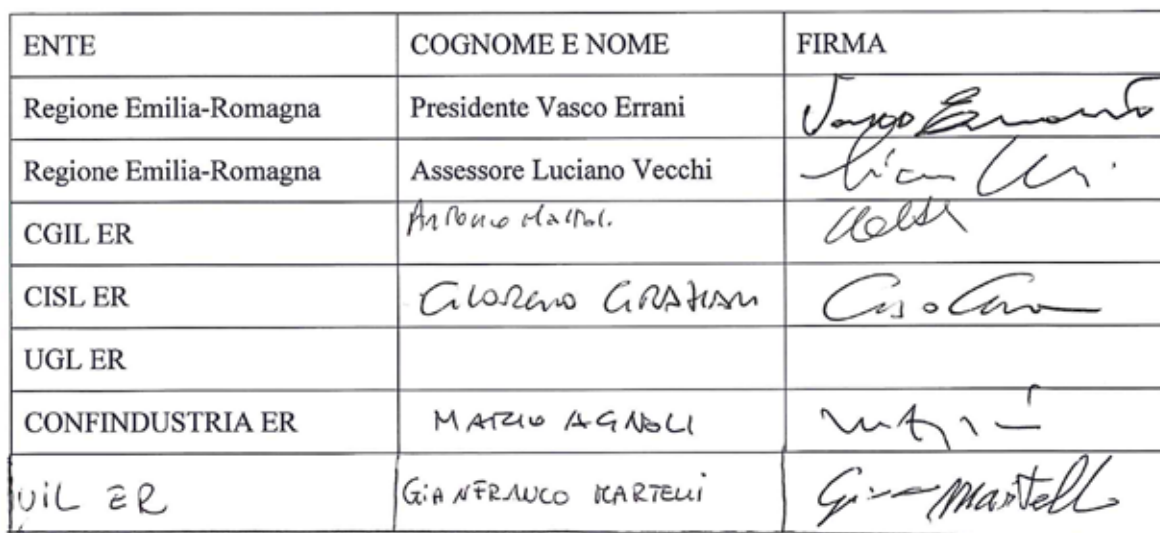 ENTE COGNOME E NOME FIRMA
Regione Emilia-Romagna Presidente Vasco Errani Vasco Errani
Regione Emilia-Romagna Assessore Luciano Vecchi
CGIL ER Antonio
CISL ER GIORGIO GRAZIANI
UGL ER
CONFINDUSTRIA ER MARIO AGNOLI
UIL ER GIANFRANCO MARTELLI Martelli